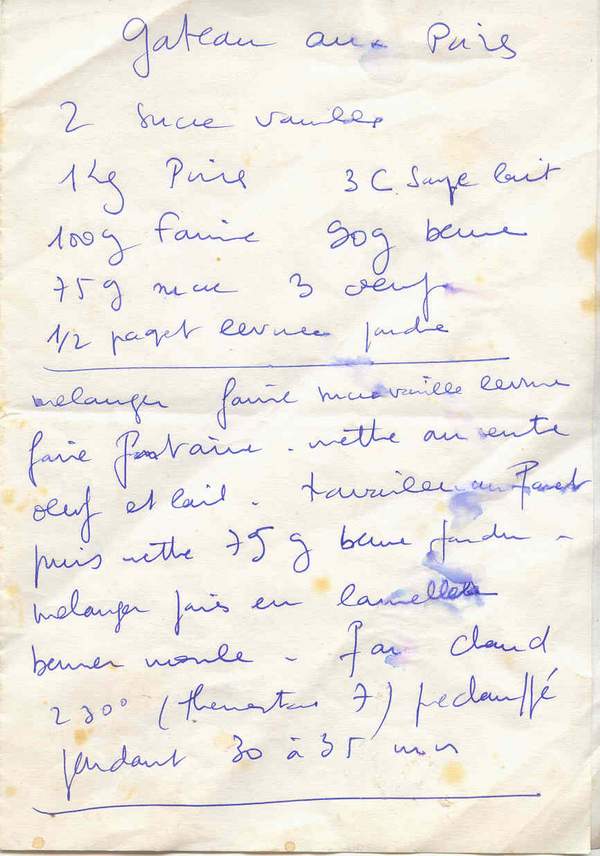 Gateau aux Poires
2 sucre vanilles
1Kg Poire 3 C. Soupe lait
100g Farine 90g beurre
75g sucre 3 oeufs
1/2 paquet levure poudre
melanger farine sucre vanille levure
faire fontaine. mettre au centre
oeuf et lait. travailler au Fouet
puis mettre 75g beurre fondu -
melanger poires en lamelles
beurrer moule - Four chaud
230° (thermostat 7) préchauffé
pendant 30 à 35 min